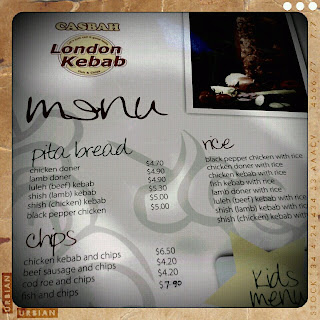 CASBAH
London
Kebab
menu
pita bread
chicken doner $4.70
lamb doner $4.90
luleh (beef) kebab $4.90
shish (lamb) kebab $5.30
shish (chicken) kebab $5.00
black pepper chicken $5.00
chips
chicken kebab and chips $6.50
beef sausage and chips $4.20
cod roe and chips $4.20
fish and chips $7.90
rice
black pepper chicken with rice
chicken doner with rice
chicken kebab with rice
fish kebab with rice
lamb doner with rice
luleh (beef) kebab with rice
shish (lamb) kebab with rice
shish (chicken) kebab with
kids
menu
URSIAN
URSIAN